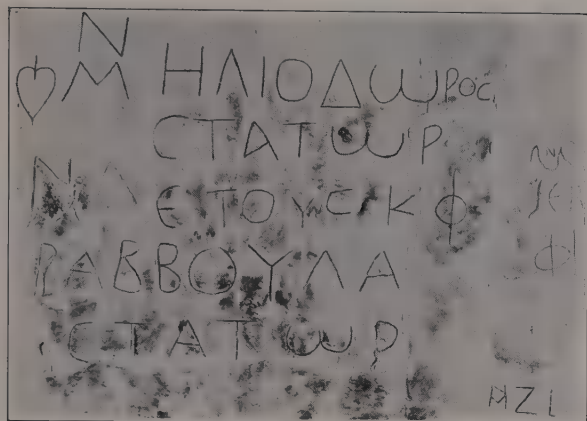 Ν
Μ ΗΛΙΟΔωΡΟϹ
ϹΤΑΤωΡ
ΕΤΟΥϹ ΚΦ
ΡΑΒΒΟΥΛΑ
ϹΤΑΤωΡ